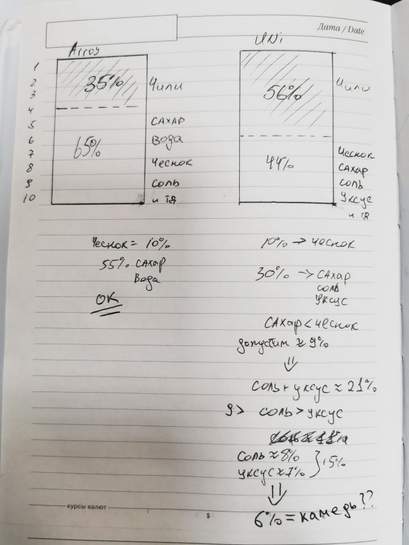 Дата / Date
Arros
UNi
1
2
3
4
5
6
7
8
9
10
35%
Чили
65%
сахар
вода
Чеснок
соль
и тд
56%
Чили
44%
Чеснок
сахар
соль
уксус
и тд
Чеснок = 10%
55% сахар
вода
ОК
10% → чеснок
30% → сахар
соль
уксус
сахар < чеснок
допустим ≈ 9%
соль + уксус ≈ 21%
9 > соль > уксус
соль ≈ 8%
уксус ≈ 7% } 15%
6% = камедь??
курсы валют